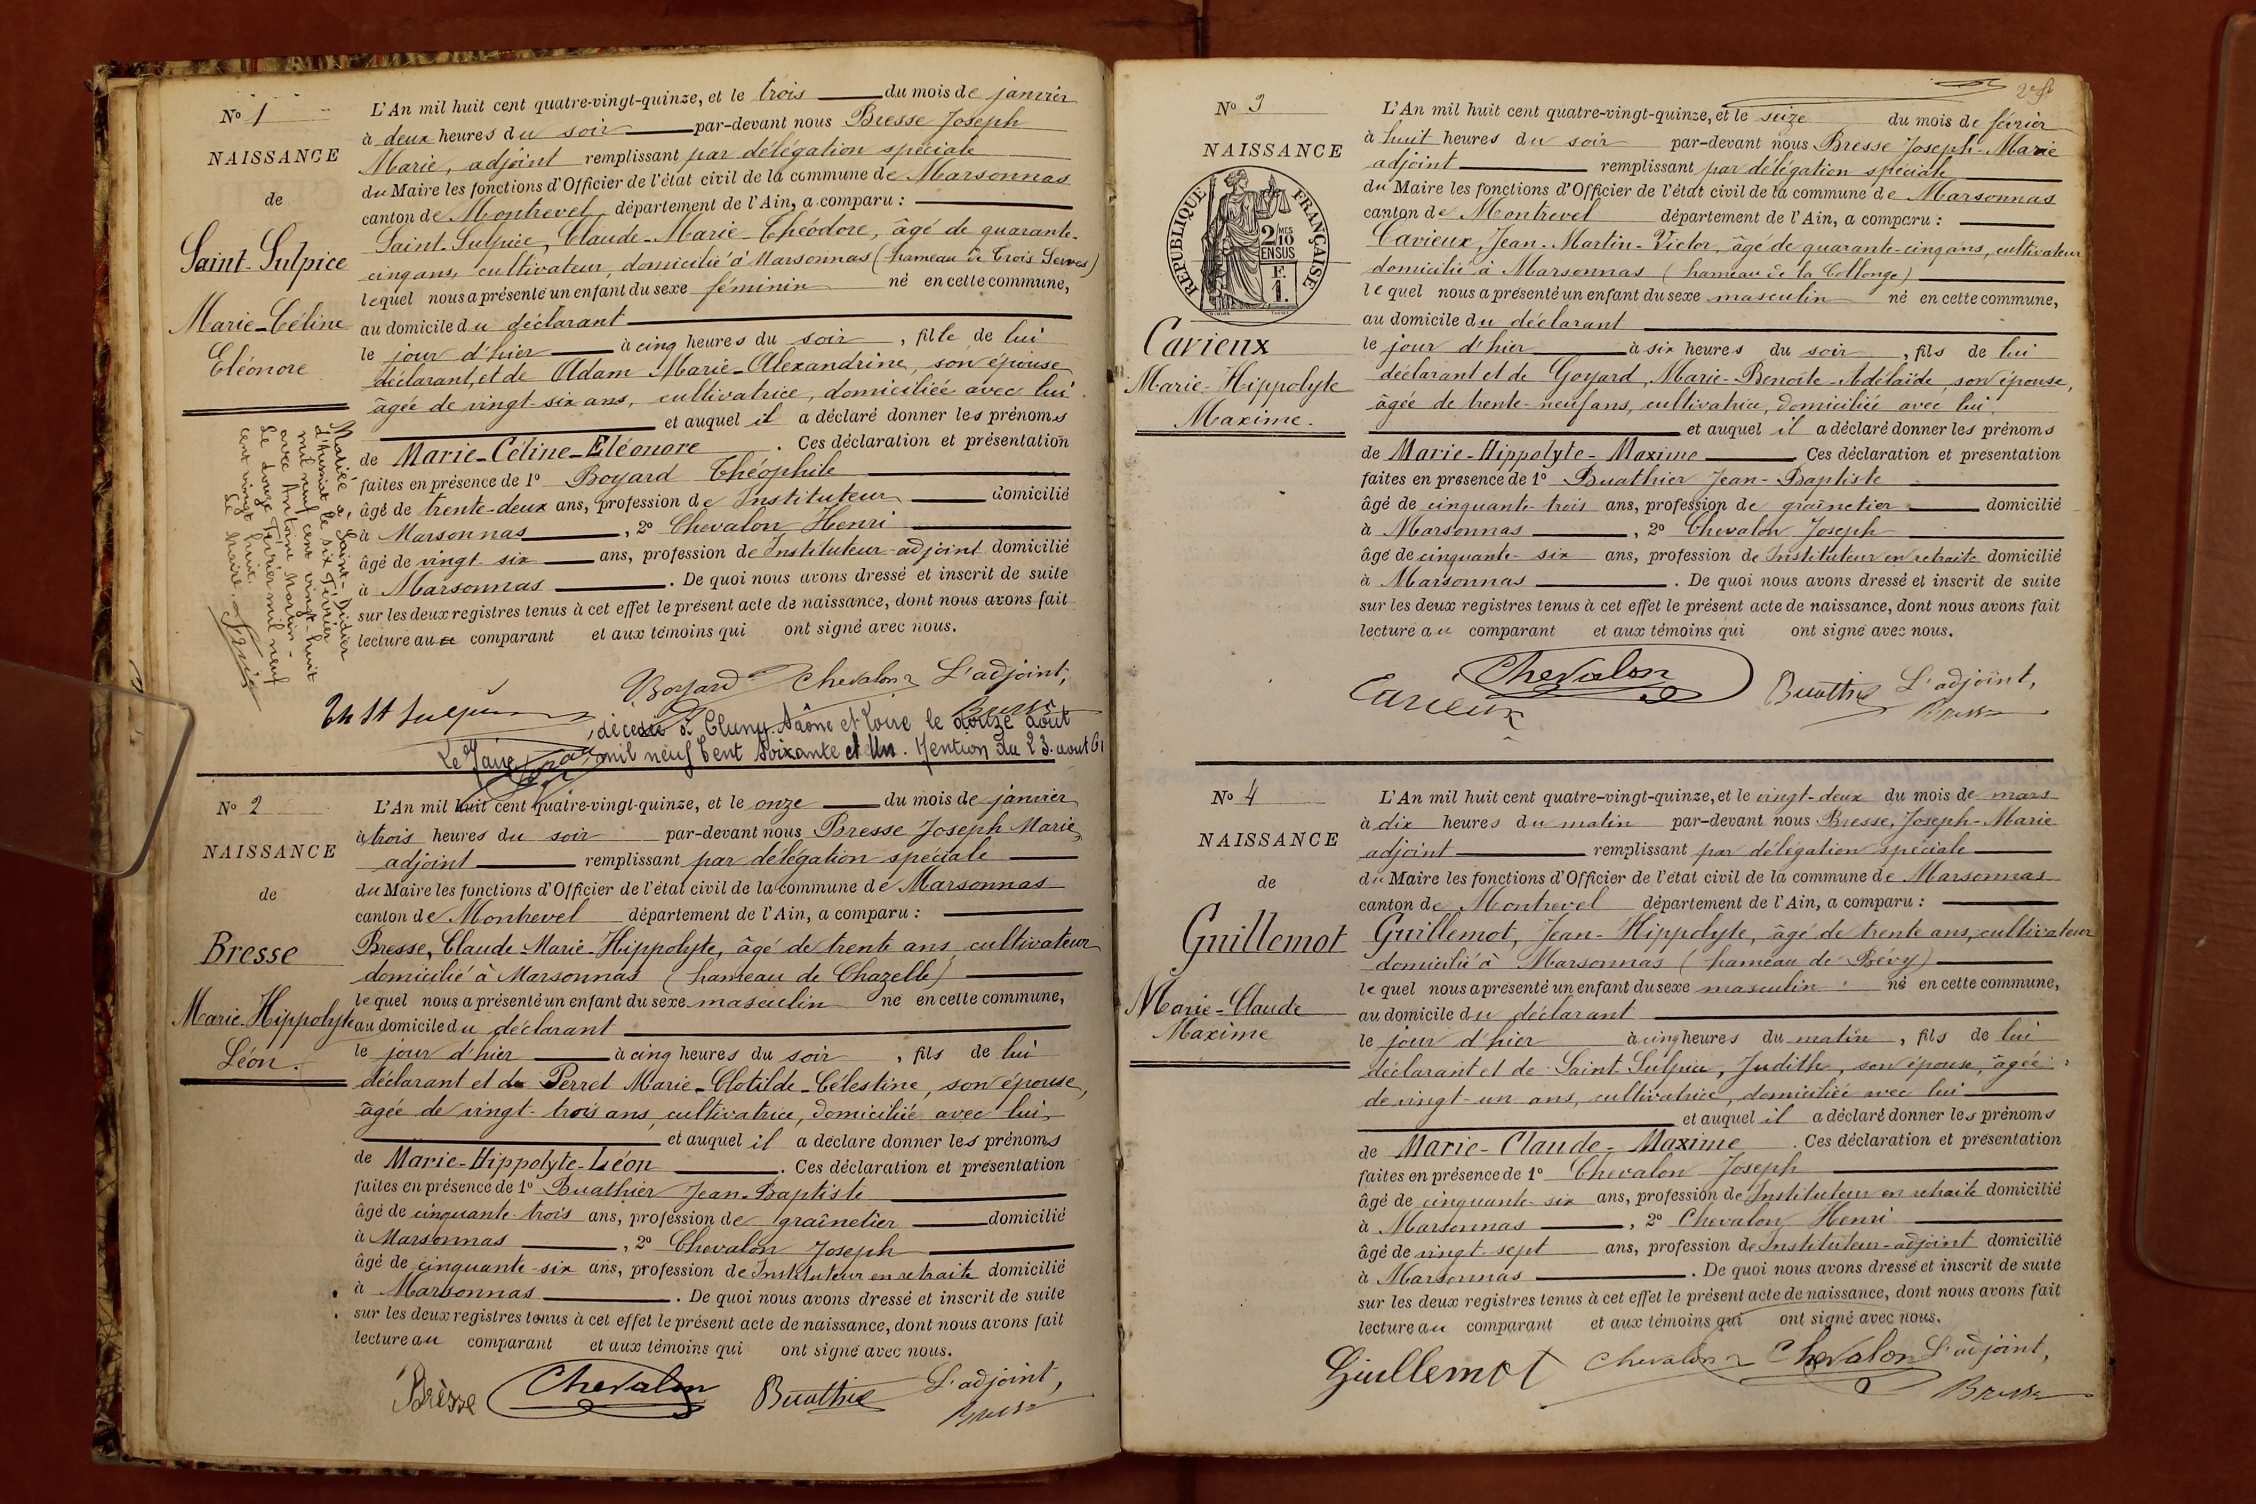 N° 1
NAISSANCE
de
Saint-Sulpice
Marie-Céline
Eléonore
Mariée à Saint-Didier
d'Aussiat le six Février
mil neuf cent vingt-huit
avec Antoine Marlin -
Le douze Février mil neuf
cent vingt huit.
Le Maire,
L'An mil huit cent quatre-vingt-quinze, et le trois du mois de janvier
à deux heures du soir par-devant nous Bresse Joseph
Marie, adjoint remplissant par délégation spéciale
du Maire les fonctions d'Officier de l'état civil de la commune de Marsonnas
canton de Montrevel département de l'Ain, a comparu :
Saint-Sulpice, Claude-Marie-Théodore, âgé de quarante-
cinq ans, cultivateur, domicilié à Marsonnas (hameau de Trois Serves)
lequel nous a présenté un enfant du sexe féminin né en cette commune,
au domicile du déclarant
le jour d'hier à cinq heures du soir, fille de lui
déclarant, et de Adam Marie-Alexandrine, son épouse
âgée de vingt-six ans, cultivatrice, domiciliée avec lui.
et auquel il a déclaré donner les prénoms
de Marie-Céline-Eléonore. Ces déclaration et présentation
faites en présence de 1° Boyard Théophile
âgé de trente-deux ans, profession de Instituteur domicilié
à Marsonnas, 2° Chevalon Henri
âgé de vingt-six ans, profession de Instituteur-adjoint domicilié
à Marsonnas. De quoi nous avons dressé et inscrit de suite
sur les deux registres tenus à cet effet le présent acte de naissance, dont nous avons fait
lecture au comparant et aux témoins qui ont signé avec nous.
Boyard Chevalon L'adjoint,
Th St Sulpice Bresse
décédée à Cluny Saône et Loire le douze août
Le Maire mil neuf Cent Soixante et Un. Mention du 23. août 61
N° 2
NAISSANCE
de
Bresse
Marie-Hippolyte
Léon.
L'An mil huit cent quatre-vingt-quinze, et le onze du mois de janvier
à trois heures du soir par-devant nous Bresse Joseph Marie,
adjoint remplissant par délégation spéciale
du Maire les fonctions d'Officier de l'état civil de la commune de Marsonnas
canton de Montrevel département de l'Ain, a comparu :
Bresse, Claude-Marie-Hippolyte, âgé de trente ans, cultivateur
domicilié à Marsonnas (hameau de Chazelle)
lequel nous a présenté un enfant du sexe masculin né en cette commune,
au domicile du déclarant
le jour d'hier à cinq heures du soir, fils de lui
déclarant et de Perret Marie-Clotilde-Célestine, son épouse,
âgée de vingt-trois ans, cultivatrice, domiciliée avec lui,
et auquel il a déclare donner les prénoms
de Marie-Hippolyte-Léon. Ces déclaration et présentation
faites en présence de 1° Buathier Jean-Baptiste
âgé de cinquante-trois ans, profession de graînetier domicilié
à Marsonnas, 2° Chevalon Joseph
âgé de cinquante-six ans, profession de Instituteur en retraite domicilié
à Marsonnas. De quoi nous avons dressé et inscrit de suite
sur les deux registres tenus à cet effet le présent acte de naissance, dont nous avons fait
lecture au comparant et aux témoins qui ont signé avec nous.
Brèsse Chevalon Buathier L'adjoint,
Bresse
N° 3
NAISSANCE
RÉPUBLIQUE FRANÇAISE
2/10 MES
EN SUS
F.
1.
Cavieux
Marie-Hippolyte
Maxime.
L'An mil huit cent quatre-vingt-quinze, et le seize du mois de février
à huit heures du soir par-devant nous Bresse Joseph-Marie
adjoint remplissant par délégation spéciale
du Maire les fonctions d'Officier de l'état civil de la commune de Marsonnas
canton de Montrevel département de l'Ain, a comparu :
Cavieux, Jean-Martin-Victor, âgé de quarante-cinq ans, cultivateur
domicilié à Marsonnas (hameau de la Collonge)
lequel nous a présenté un enfant du sexe masculin né en cette commune,
au domicile du déclarant
le jour d'hier à six heures du soir, fils de lui
déclarant et de Goyard, Marie-Benoîte-Adélaïde, son épouse,
âgée de trente-neuf ans, cultivatrice, domiciliée avec lui.
et auquel il a déclaré donner les prénoms
de Marie-Hippolyte-Maxime Ces déclaration et présentation
faites en présence de 1° Buathier Jean-Baptiste
âgé de cinquante-trois ans, profession de graînetier domicilié
à Marsonnas, 2° Chevalon Joseph
âgé de cinquante-six ans, profession de Instituteur en retraite domicilié
à Marsonnas. De quoi nous avons dressé et inscrit de suite
sur les deux registres tenus à cet effet le présent acte de naissance, dont nous avons fait
lecture au comparant et aux témoins qui ont signé avec nous.
Cavieux Chevalon Buathier L'adjoint,
Bresse
N° 4
NAISSANCE
de
Guillemot
Marie-Claude
Maxime
L'An mil huit cent quatre-vingt-quinze, et le vingt-deux du mois de mars
à dix heures du matin par-devant nous Bresse, Joseph-Marie
adjoint remplissant par délégation spéciale
du Maire les fonctions d'Officier de l'état civil de la commune de Marsonnas
canton de Montrevel département de l'Ain, a comparu :
Guillemot, Jean-Hippolyte, âgé de trente ans, cultivateur
domicilié à Marsonnas (hameau de Bévy)
lequel nous a présenté un enfant du sexe masculin né en cette commune,
au domicile du déclarant
le jour d'hier à cinq heures du matin, fils de lui
déclarant et de Saint-Sulpice, Judith, son épouse, âgée
de vingt-un ans, cultivatrice, domiciliée avec lui
et auquel il a déclaré donner les prénoms
de Marie-Claude-Maxime. Ces déclaration et présentation
faites en présence de 1° Chevalon Joseph
âgé de cinquante-six ans, profession de Instituteur en retraite domicilié
à Marsonnas, 2° Chevalon Henri
âgé de vingt-sept ans, profession de Instituteur-adjoint domicilié
à Marsonnas. De quoi nous avons dressé et inscrit de suite
sur les deux registres tenus à cet effet le présent acte de naissance, dont nous avons fait
lecture au comparant et aux témoins qui ont signé avec nous.
Guillemot Chevalon Chevalon L'adjoint,
Bresse